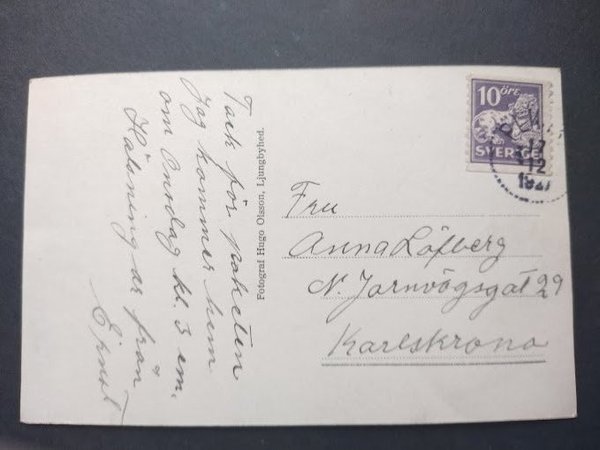 Tack för paketen
Jag kommer hem
om Onsdag kl. 3 em.
Hälsningar från
Ernst
Fotograf Hugo Olsson, Ljungbyhed.
10 ÖRE
SVERIGE
17
12
1927
Fru
Anna Löfberg
N. Jarnvägsgat 29
Karlskrona